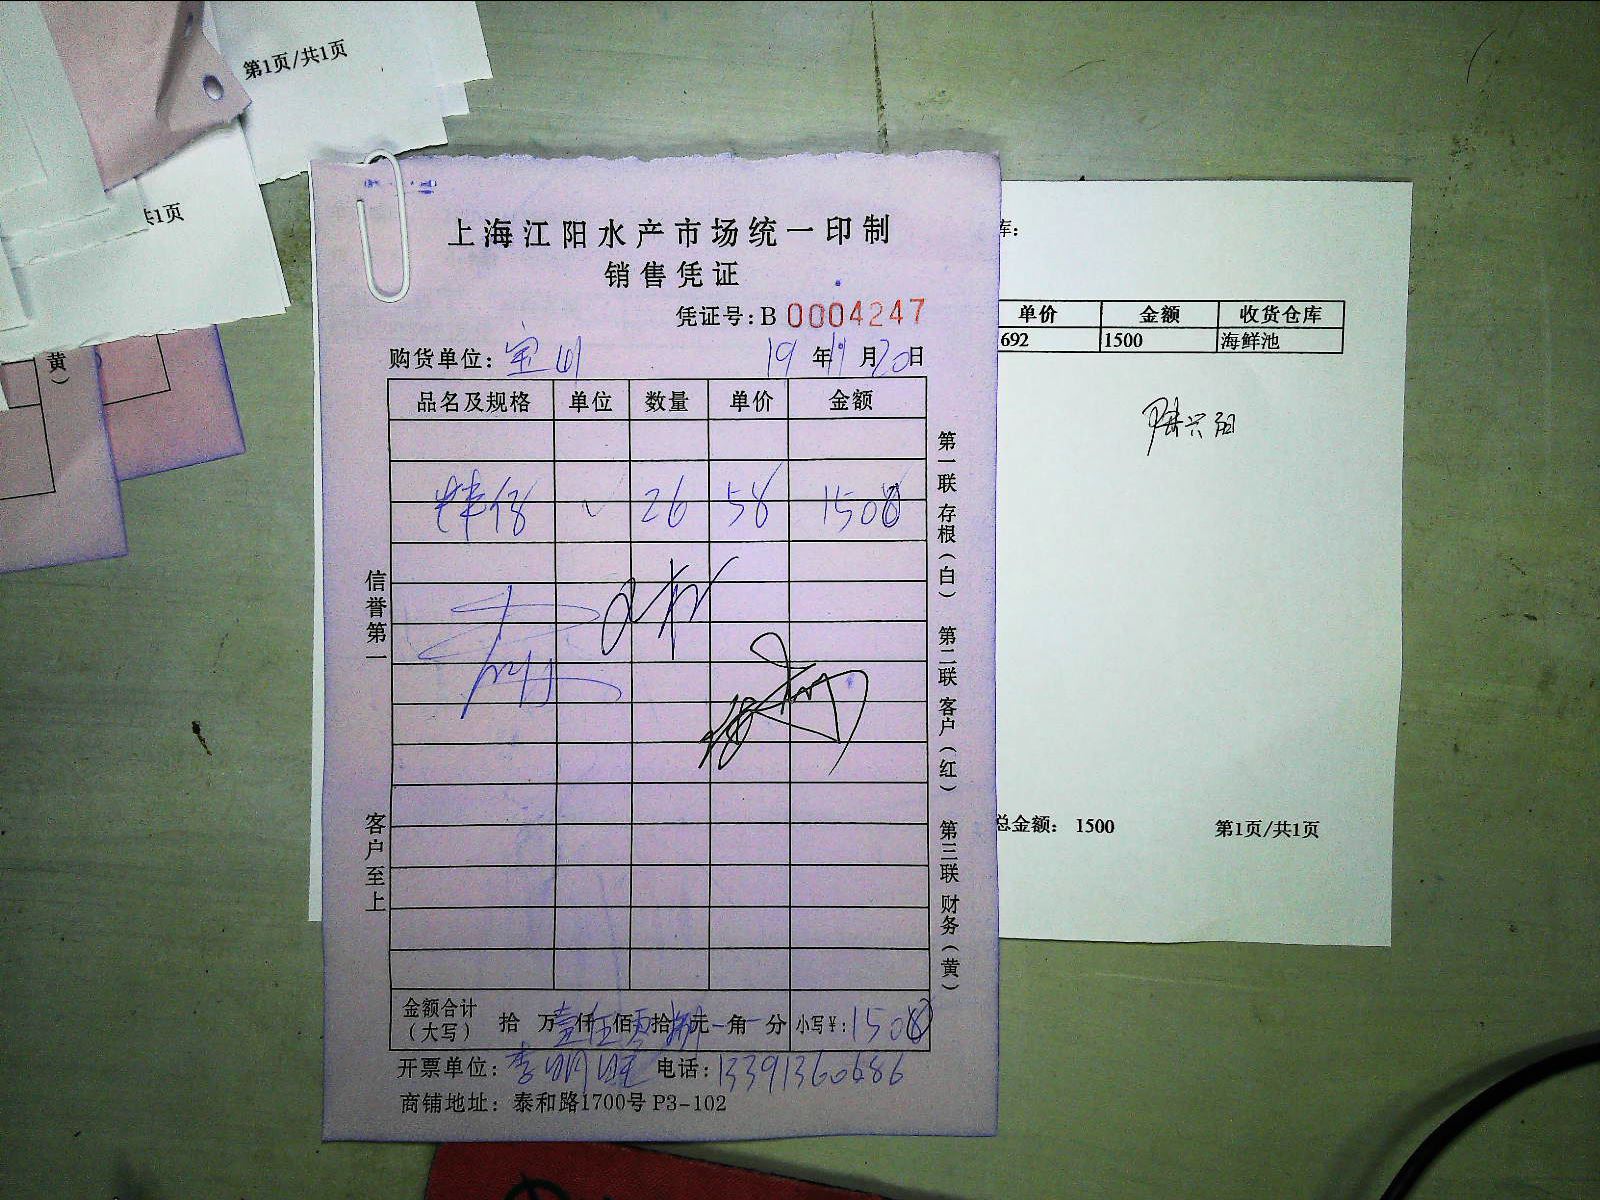 第1页/共1页
共1页
黄）
上海江阳水产市场统一印制
销售凭证
凭证号:B 0004247
购货单位: 宝山 19 年 11 月 20 日
品名及规格 单位 数量 单价 金额
26 58 1500
信誉第一
客户至上
第一联 存根（白） 第二联 客户（红） 第三联 财务（黄）
金额合计（大写） 拾 万 壹 仟 伍 佰 零 拾 元 角 分 小写¥: 1500
开票单位: 李明旺 电话: 13391360686
商铺地址: 泰和路1700号 P3-102
库:
单价 金额 收货仓库
692 1500 海鲜池
陆兴阳
总金额: 1500 第1页/共1页